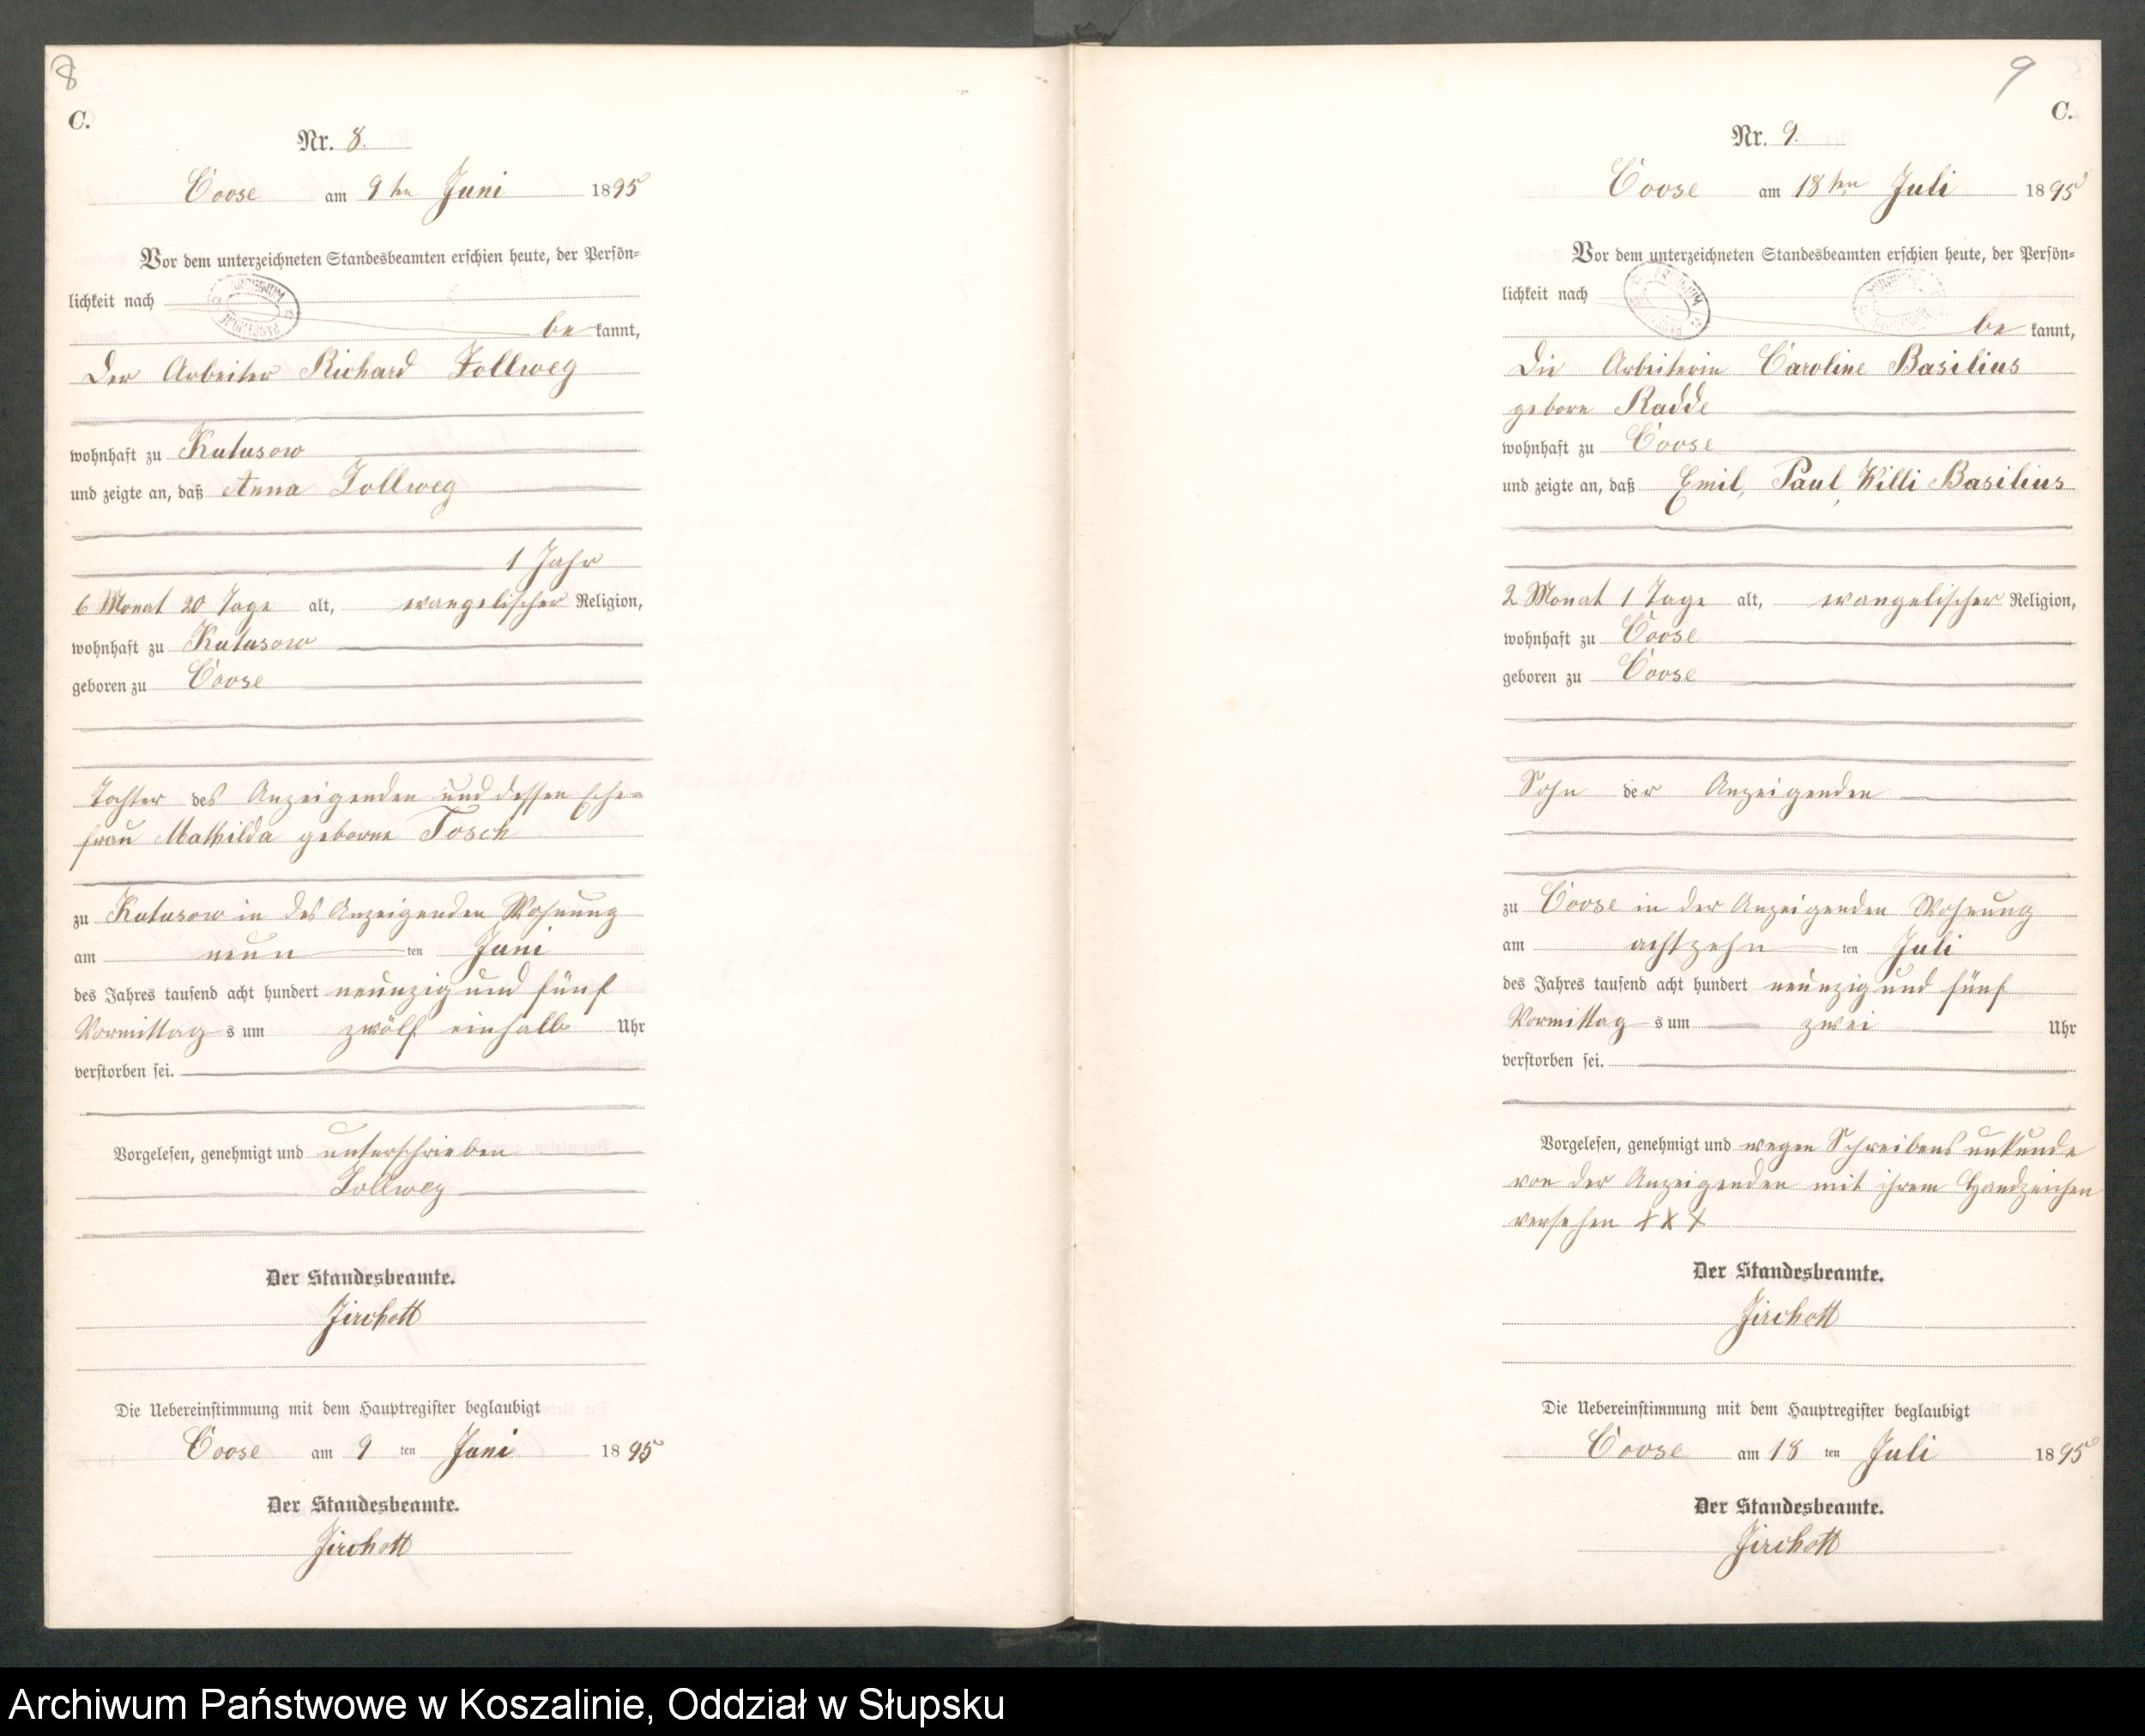 8
C.
Nr. 8.
Coose am 9ten Juni 1895
Vor dem unterzeichneten Standesbeamten erschien heute, der Persön-
lichkeit nach
be kannt,
Der Arbeiter Richard Zollweg
wohnhaft zu Kutusow
und zeigte an, daß Anna Zollweg
1 Jahr
6 Monat 20 Tage alt, evangelischer Religion,
wohnhaft zu Kutusow
geboren zu Coose
Tochter des Anzeigenden und dessen Ehe-
frau Mathilda geborne Tosch
zu Kutusow in des Anzeigenden Wohnung
am neun ten Juni
des Jahres tausend acht hundert neunzig und fünf
Vormittag s um zwölf einhalb Uhr
verstorben sei.
Vorgelesen, genehmigt und unterschrieben
Zollweg
Der Standesbeamte.
Jirchott
Die Uebereinstimmung mit dem Hauptregister beglaubigt
Coose am 9 ten Juni 1895
Der Standesbeamte.
Jirchott
9
C.
Nr. 9.
Coose am 18ten Juli 1895
Vor dem unterzeichneten Standesbeamten erschien heute, der Persön-
lichkeit nach
be kannt,
Die Arbeiterin Caroline Basilius
geborn Radde
wohnhaft zu Coose
und zeigte an, daß Emil, Paul, Willi Basilius
2 Monat 1 Tage alt, evangelischer Religion,
wohnhaft zu Coose
geboren zu Coose
Sohn der Anzeigenden
zu Coose in der Anzeigenden Wohnung
am achtzehn ten Juli
des Jahres tausend acht hundert neunzig und fünf
Vormittag s um zwei Uhr
verstorben sei.
Vorgelesen, genehmigt und wegen Schreibensunkunde
von der Anzeigenden mit ihrem Handzeichen
versehen XXX
Der Standesbeamte.
Jirchott
Die Uebereinstimmung mit dem Hauptregister beglaubigt
Coose am 18 ten Juli 1895
Der Standesbeamte.
Jirchott
Archiwum Państwowe w Koszalinie, Oddział w Słupsku